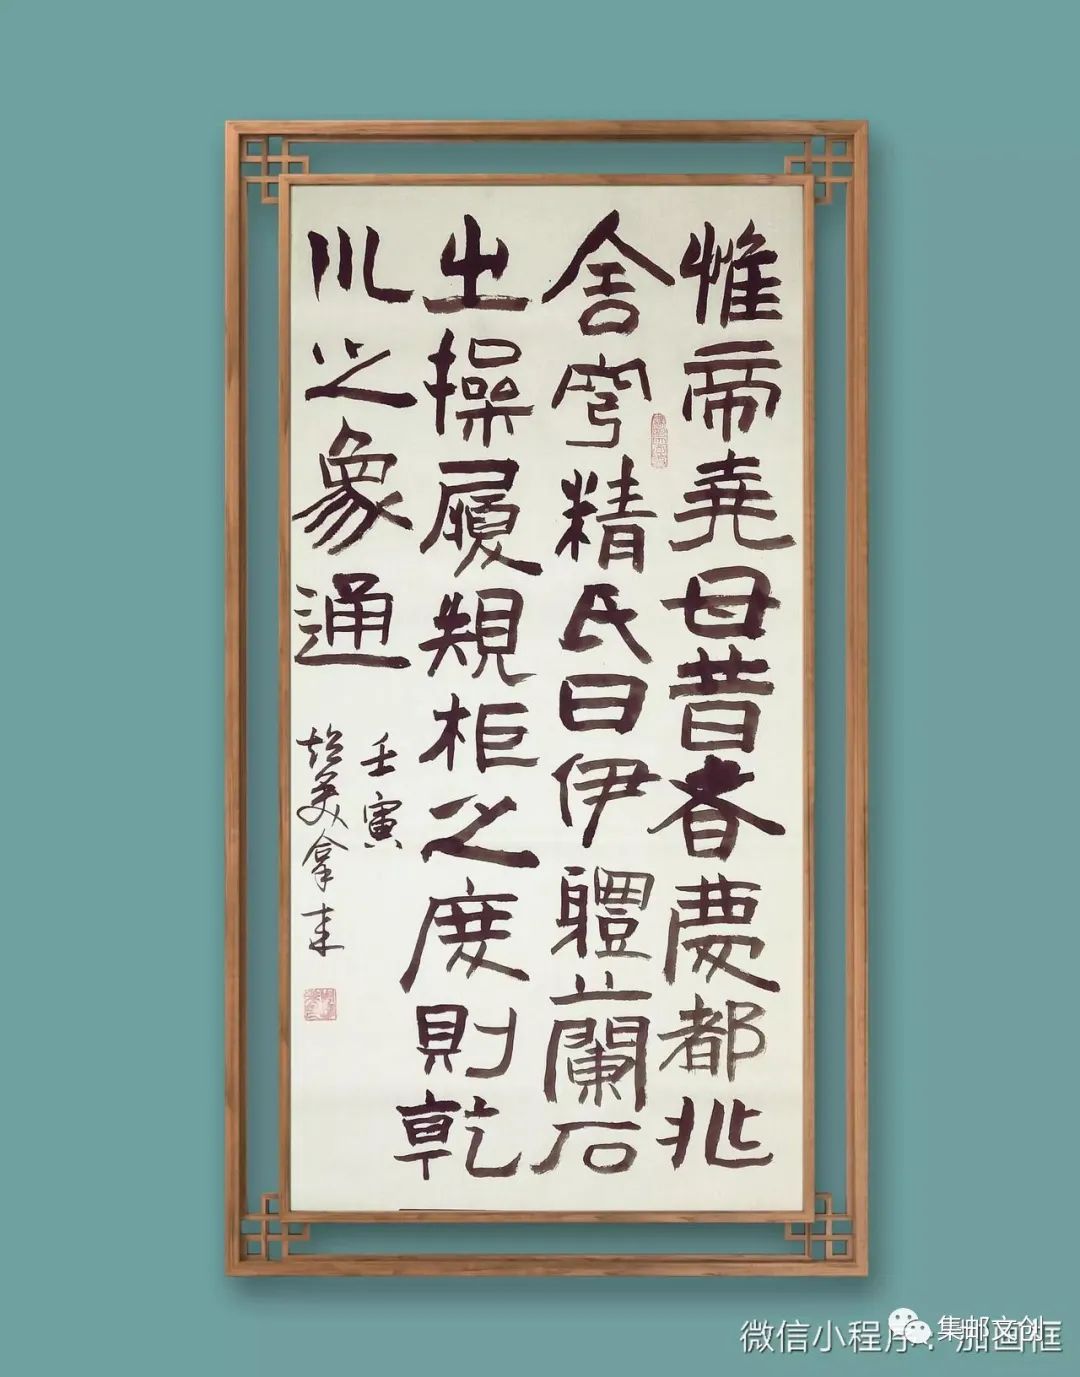 惟帝堯母昔者慶都兆
舍穹精氏曰伊體蘭石
之操履規柜之度則乾
川之象通
壬寅
微信小程序：加画框
集邮文创